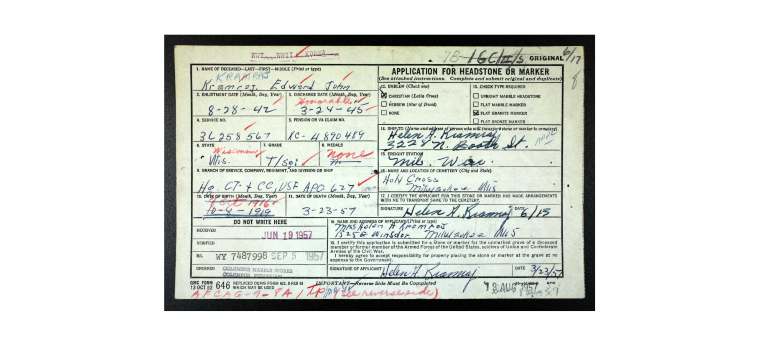 WWI WWII KOREA
ORIGINAL 6/17
1. NAME OF DECEASED—LAST—FIRST—MIDDLE (Print or type)
KRAMRAJ
Kramroj, Edward John
2. ENLISTMENT DATE (Month, Day, Year)
8-28-42
3. DISCHARGE DATE (Month, Day, Year)
Honorable
3-24-45
4. SERVICE NO.
36258567
5. PENSION OR VA CLAIM NO.
XC-4890489
6. STATE
Wisconsin
Wis.
7. GRADE
T/Sgt
8. MEDALS
None
9. BRANCH OF SERVICE, COMPANY, REGIMENT, AND DIVISION OR SHIP
Hq. CT + CC, USF APO 627
10. DATE OF BIRTH (Month, Day, Year)
1916
10-8-1919
11. DATE OF DEATH (Month, Day, Year)
3-23-57
DO NOT WRITE HERE
RECEIVED JUN 19 1957
VERIFIED
W/L WY 7487998 SEP 5 1957
ORDERED COLUMBUS MARBLE WORKS
APPLICATION FOR HEADSTONE OR MARKER
(See attached instructions. Complete and submit original and duplicate)
12. EMBLEM (Check one)
CHRISTIAN (Latin Cross)
HEBREW (Star of David)
NONE
13. CHECK TYPE REQUIRED
UPRIGHT MARBLE HEADSTONE
FLAT MARBLE MARKER
FLAT GRANITE MARKER
FLAT BRONZE MARKER
Helen A. Kramroj
3228 N. Booth St.
15. FREIGHT STATION
Mil. Wis.
16. NAME AND LOCATION OF CEMETERY (City and State)
Holy Cross
Milwaukee Wis
17. I CERTIFY THE APPLICANT FOR THIS STONE OR MARKER HAS MADE ARRANGEMENTS
WITH ME TO TRANSPORT SAME TO THE CEMETERY.
SIGNATURE Helen A. Kramroj DATE 6/15
18. NAME AND ADDRESS OF APPLICANT (Print or type)
Mrs Helen A Kramroj
1525 E Windsor Milwaukee Wis
19. I certify this application is submitted for a Stone or marker for the unmarked grave of a deceased
member or former member of the Armed Forces of the United States, soldiers of Union and Confederate
Armies of the Civil War.
I hereby agree to accept responsibility for properly placing the stone or marker at the grave at no
expense to the Government.
SIGNATURE OF APPLICANT Helen A Kramroj DATE 3/23/57
QMC FORM
13 OCT 52 646 REPLACES QMC FORM 8 FEB 49
WHICH MAY BE USED
IMPORTANT—Reverse Side Must Be Completed
see reverse side)
12 AUG 1957